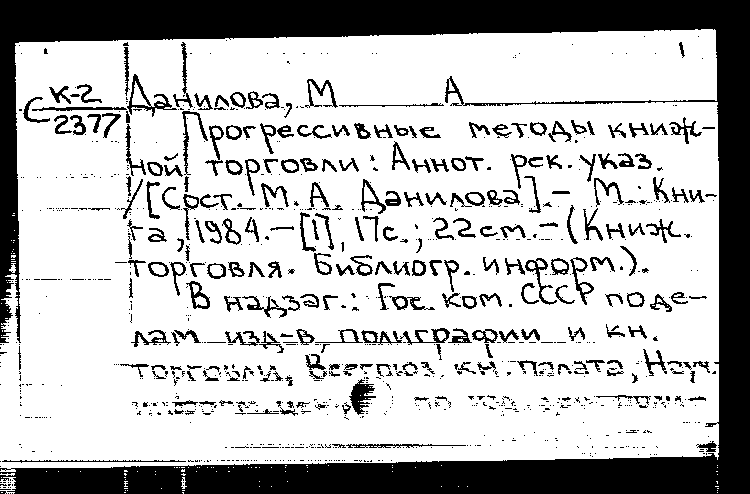 С К-2 Данилова, М А
2377 Прогрессивные методы книж-
ной торговли: Аннот. рек. указ.
/ [Сост. М. А. Данилова].— М.: Кни-
га, 1984.—[1], 17с.; 22см.—(Книж.
торговля. Библиогр. информ.).
В надзаг.: Гос. ком. СССР по де-
лам изд-в, полиграфии и кн.
торговли, Всесоюз. кн. палата, Науч.
информ. центр по изд.